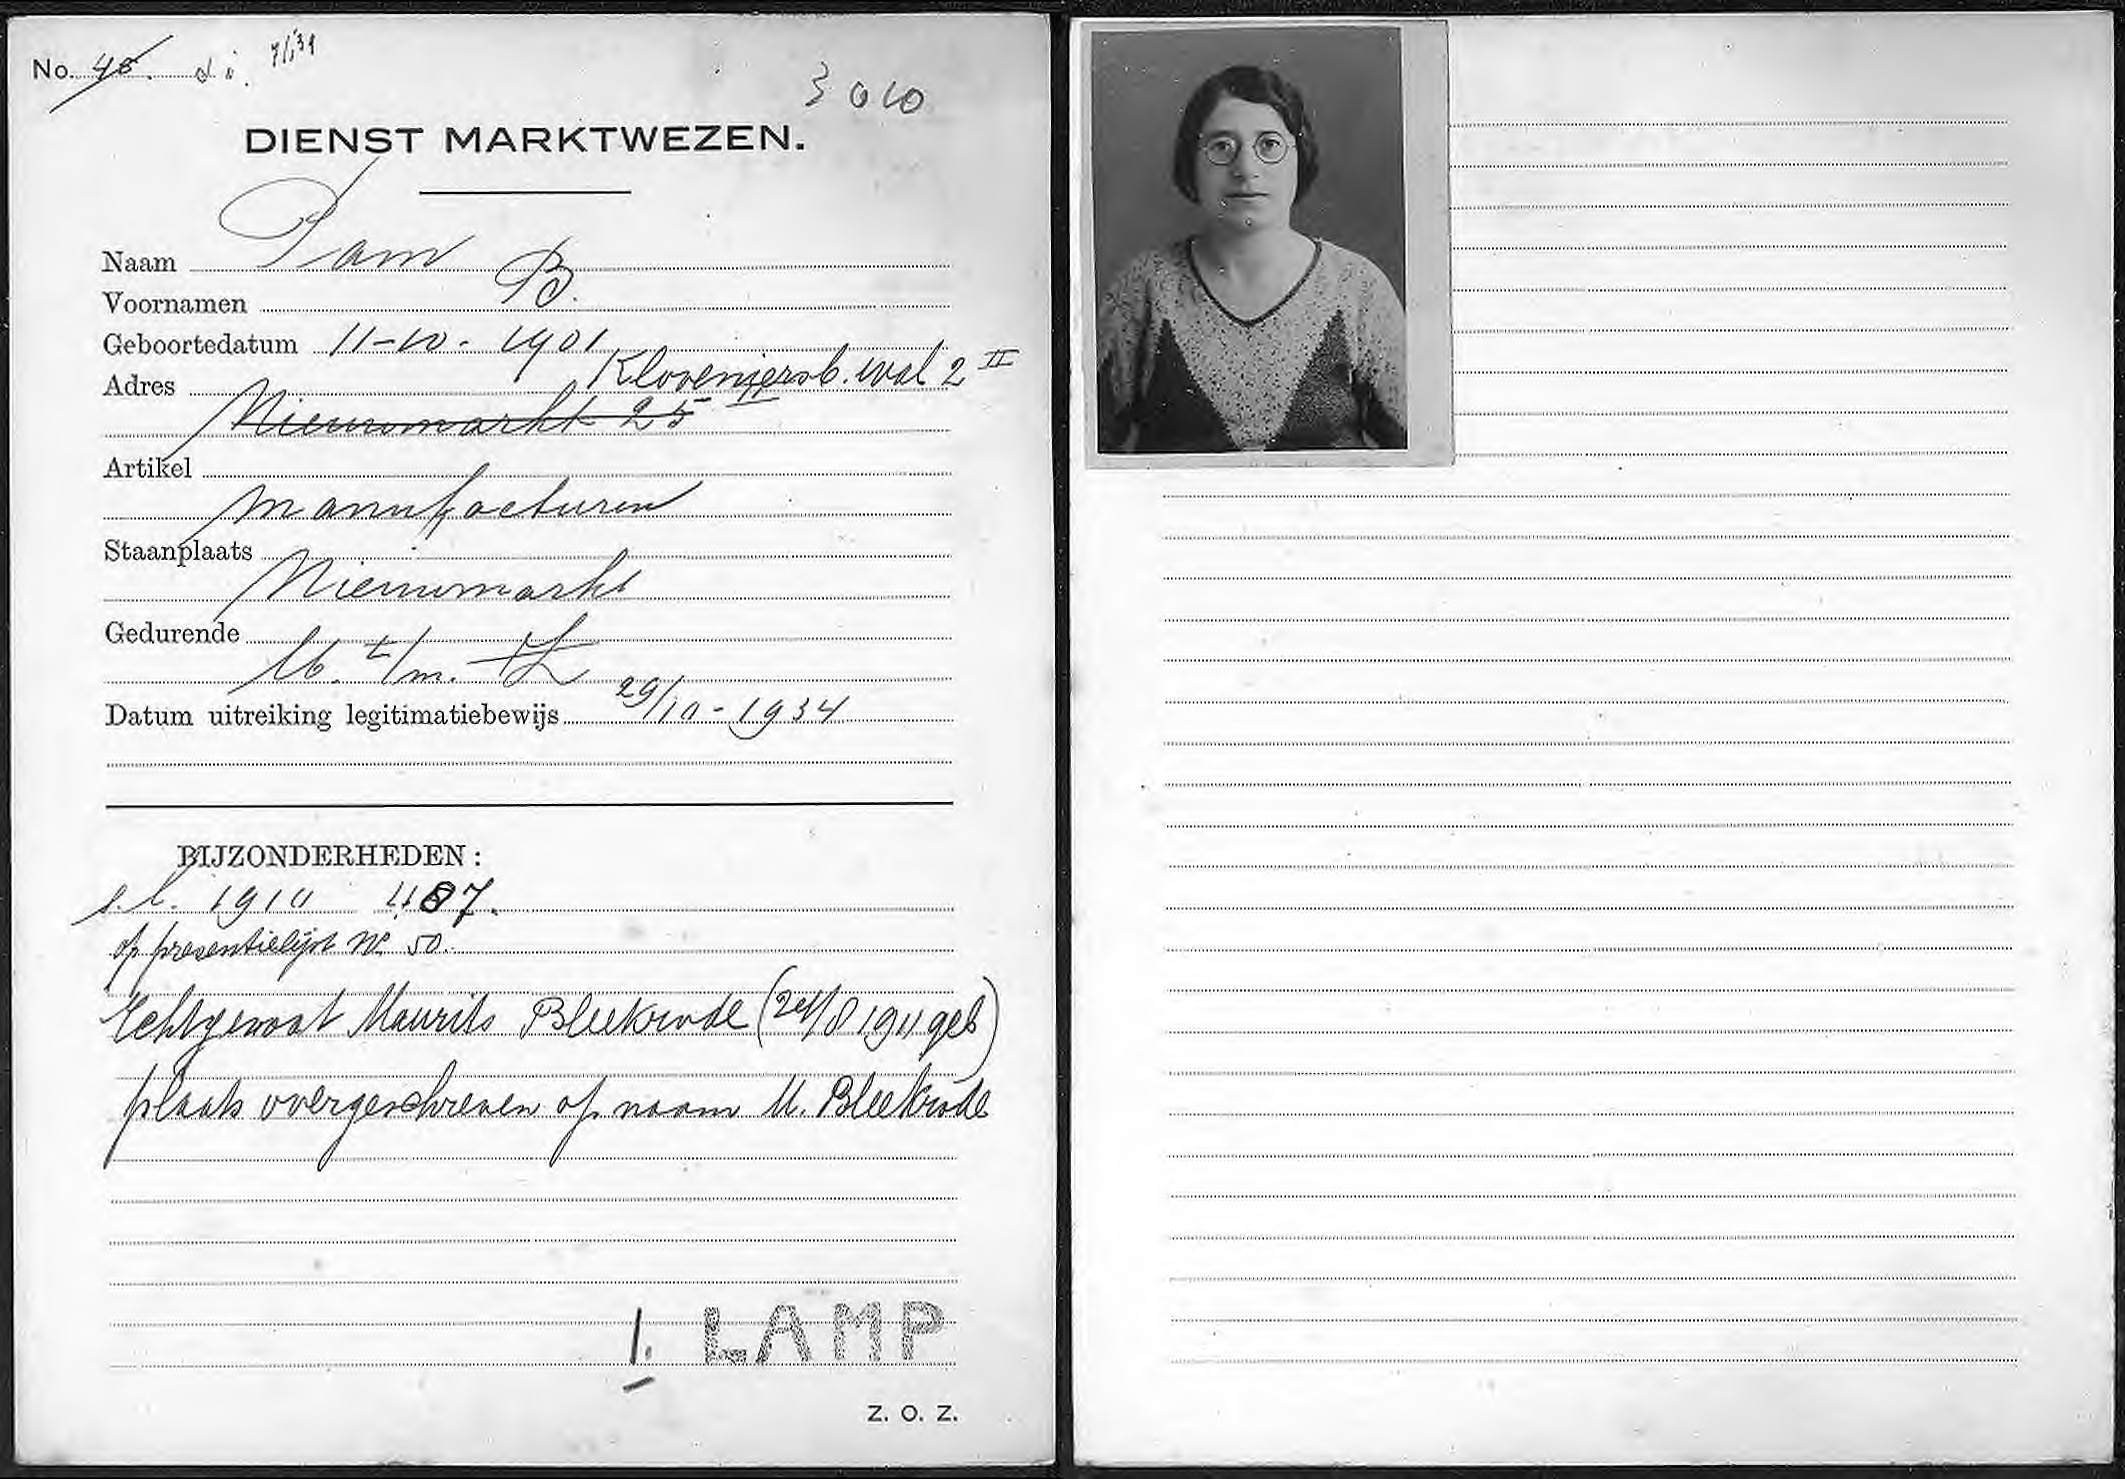 No. 48. d.i. 7/1 '39
3010
DIENST MARKTWEZEN.
Naam Dam
Voornamen B.
Geboortedatum 11-10-1901
Adres Kloveniersb.wal 2 II
Nieuwmarkt 25 II
Artikel
manufacturen
Staanplaats
Nieuwmarkt
Gedurende
M. t/m. Z
Datum uitreiking legitimatiebewijs 29/10-1934
BIJZONDERHEDEN:
s.l. 1910 487.
op presentielijst No. 50.
Echtgenoot Maurits Bleekrode (24/8 1911 geb)
plaats overgeschreven op naam M. Bleekrode
1. LAMP
Z. O. Z.